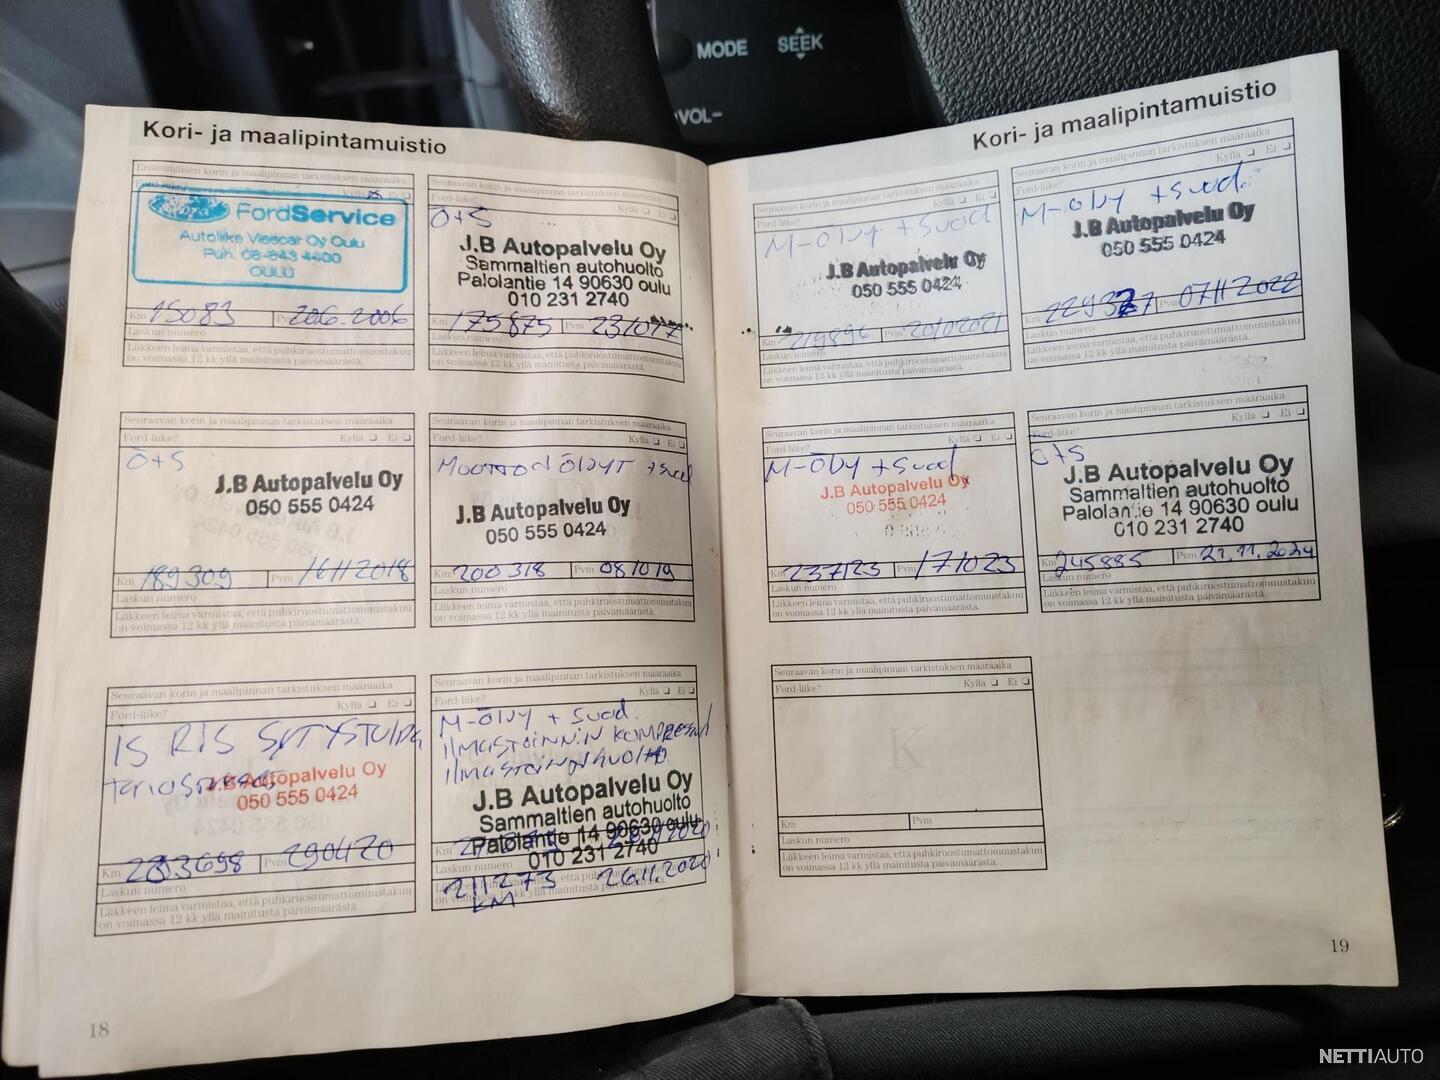 MODE
SEEK
VOL-
Kori- ja maalipintamuistio
Ensimmäisen korin ja maalipinnan tarkistuksen määräaika
Ford-liike?
FordService
Autoliike Viescar Oy Oulu
Puh. 08-843 4400
OULU
Km 15083 Pvm 206.2006
Laskun numero
Liikkeen leima varmistaa, että puhkiruostumattomuustakuu
on voimassa 12 kk yllä mainitusta päivämäärästä.
Seuraavan korin ja maalipinnan tarkistuksen määräaika
Ford-liike? Kyllä Ei
Ö+S
J.B Autopalvelu Oy
Sammaltien autohuolto
Palolantie 14 90630 oulu
010 231 2740
Km 175875 Pvm 231017
Laskun numero
Liikkeen leima varmistaa, että puhkiruostumattomuustakuu
on voimassa 12 kk yllä mainitusta päivämäärästä.
Seuraavan korin ja maalipinnan tarkistuksen määräaika
Ford-liike? Kyllä Ei
Ö+S
J.B Autopalvelu Oy
050 555 0424
Km 189309 Pvm 16112018
Laskun numero
Liikkeen leima varmistaa, että puhkiruostumattomuustakuu
on voimassa 12 kk yllä mainitusta päivämäärästä.
Seuraavan korin ja maalipinnan tarkistuksen määräaika
Ford-liike? Kyllä Ei
J.B Autopalvelu Oy
050 555 0424
Km 200318 Pvm 081019
Laskun numero
Liikkeen leima varmistaa, että puhkiruostumattomuustakuu
on voimassa 12 kk yllä mainitusta päivämäärästä.
Seuraavan korin ja maalipinnan tarkistuksen määräaika
Ford-liike? Kyllä Ei
J.B Autopalvelu Oy
050 555 0424
Km Pvm 290420
Laskun numero
Liikkeen leima varmistaa, että puhkiruostumattomuustakuu
on voimassa 12 kk yllä mainitusta päivämäärästä.
Seuraavan korin ja maalipinnan tarkistuksen määräaika
Ford-liike? Kyllä Ei
M-ÖLJY + Suod.
J.B Autopalvelu Oy
Sammaltien autohuolto
Palolantie 14 90630 oulu
010 231 2740
Km
Laskun numero
211273 26.11.2020
KM
18
Kori- ja maalipintamuistio
Seuraavan korin ja maalipinnan tarkistuksen määräaika
Ford-liike? Kyllä Ei
M-ÖLJY + Suod
J.B Autopalvelu Oy
050 555 0424
Km 219896 Pvm 20102021
Laskun numero
Liikkeen leima varmistaa, että puhkiruostumattomuustakuu
on voimassa 12 kk yllä mainitusta päivämäärästä.
Seuraavan korin ja maalipinnan tarkistuksen määräaika
Ford-liike? Kyllä Ei
M-ÖLJY + Suod.
J.B Autopalvelu Oy
050 555 0424
Km Pvm 07112022
Laskun numero
Liikkeen leima varmistaa, että puhkiruostumattomuustakuu
on voimassa 12 kk yllä mainitusta päivämäärästä.
Seuraavan korin ja maalipinnan tarkistuksen määräaika
Ford-liike? Kyllä Ei
M-ÖLJY + Suod
J.B Autopalvelu Oy
050 555 0424
Km 237123 Pvm 171023
Laskun numero
Liikkeen leima varmistaa, että puhkiruostumattomuustakuu
on voimassa 12 kk yllä mainitusta päivämäärästä.
Seuraavan korin ja maalipinnan tarkistuksen määräaika
Ford-liike? Kyllä Ei
Ö+S
J.B Autopalvelu Oy
Sammaltien autohuolto
Palolantie 14 90630 oulu
010 231 2740
Km 245885 Pvm 21.11.2024
Laskun numero
Liikkeen leima varmistaa, että puhkiruostumattomuustakuu
on voimassa 12 kk yllä mainitusta päivämäärästä.
Seuraavan korin ja maalipinnan tarkistuksen määräaika
Ford-liike? Kyllä Ei
K
Km Pvm
Laskun numero
Liikkeen leima varmistaa, että puhkiruostumattomuustakuu
on voimassa 12 kk yllä mainitusta päivämäärästä.
19
NETTIAUTO